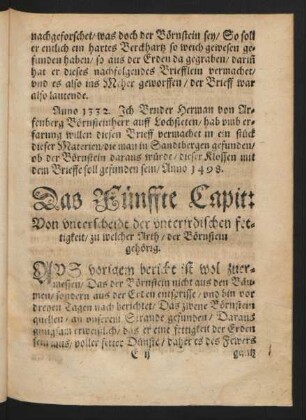 nachgeforschet/ was doch der Börnstein sey/ So soll
er entlich ein hartes Berckhartz so weich gewesen ge-
funden haben/ so aus der Erden da gegraben/ darin
hat er dieses nachfolgendes Briefflein vermachet/
und es also ins Meher geworffen/ der Brieff war
also lautende.
Anno 1332. Ich Bruder Herman von Ar-
fenberg Börnsteinherr auff Lochsteten/ hab umb er-
farung willen diesen Brieff vermachet in ein stück
dieser Materien/ die man in Sandtbergen gefunden/
ob der Börnstein daraus würde/ dieser Klossen mit
dem Brieffe soll gefunden sein/ Anno 1498.
Das Fünffte Capit:
Von unterscheidt der unterirdischen fet-
tigkeit/ zu welcher Arth/ der Börnstein
gehörig.
AUS vorigem bericht ist wol zuer-
messen/ Das der Börnstein nicht aus den Bäu-
men/ sondern aus der Erden entsprisse/ und bin vor
dreyen Tagen nach berichtet/ Das zwene Börnstein
quellen/ an unserem Strande gefunden/ Daraus
gungsam erweißlich/ das er eine fetigkeit der Erden
sein mus/ voller fetter Dünste/ daher es des Fewers
C ij
gantz